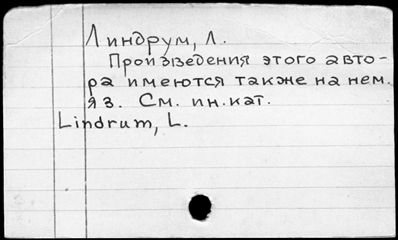 Линдрум, Л.
Произведения этого авто-
ра имеются также на нем.
яз. См. ин. кат.
Lindrum, L.